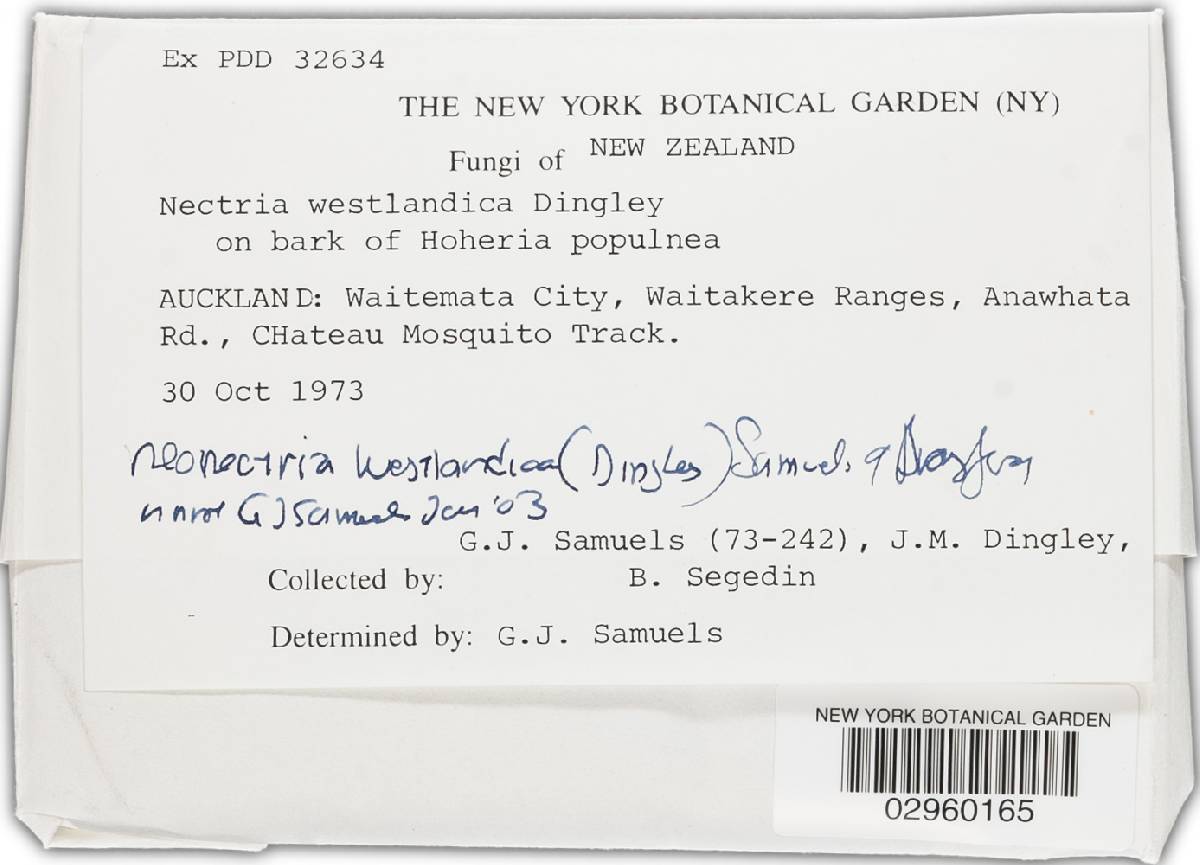 Ex PDD 32634
THE NEW YORK BOTANICAL GARDEN (NY)
Fungi of NEW ZEALAND
Nectria westlandica Dingley
on bark of Hoheria populnea
AUCKLAND: Waitemata City, Waitakere Ranges, Anawhata
Rd., CHateau Mosquito Track.
30 Oct 1973
Neonectria westlandica (Dingley) Samuels &
GJ Samuels Jan '03
G.J. Samuels (73-242), J.M. Dingley,
Collected by: B. Segedin
Determined by: G.J. Samuels
NEW YORK BOTANICAL GARDEN
02960165